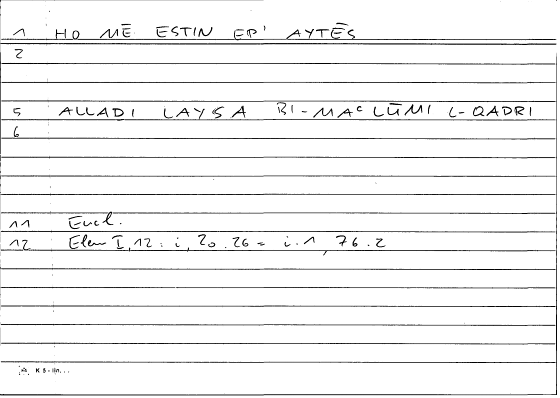 1 HO MĒ ESTIN EP' AYTĒS
2
5 ALLADI LAYSA BI-MAᶜLŪMI L-QADRI
6
11 Eucl.
12 Elem I, 12 : i, 20.26 = i.1, 76.2